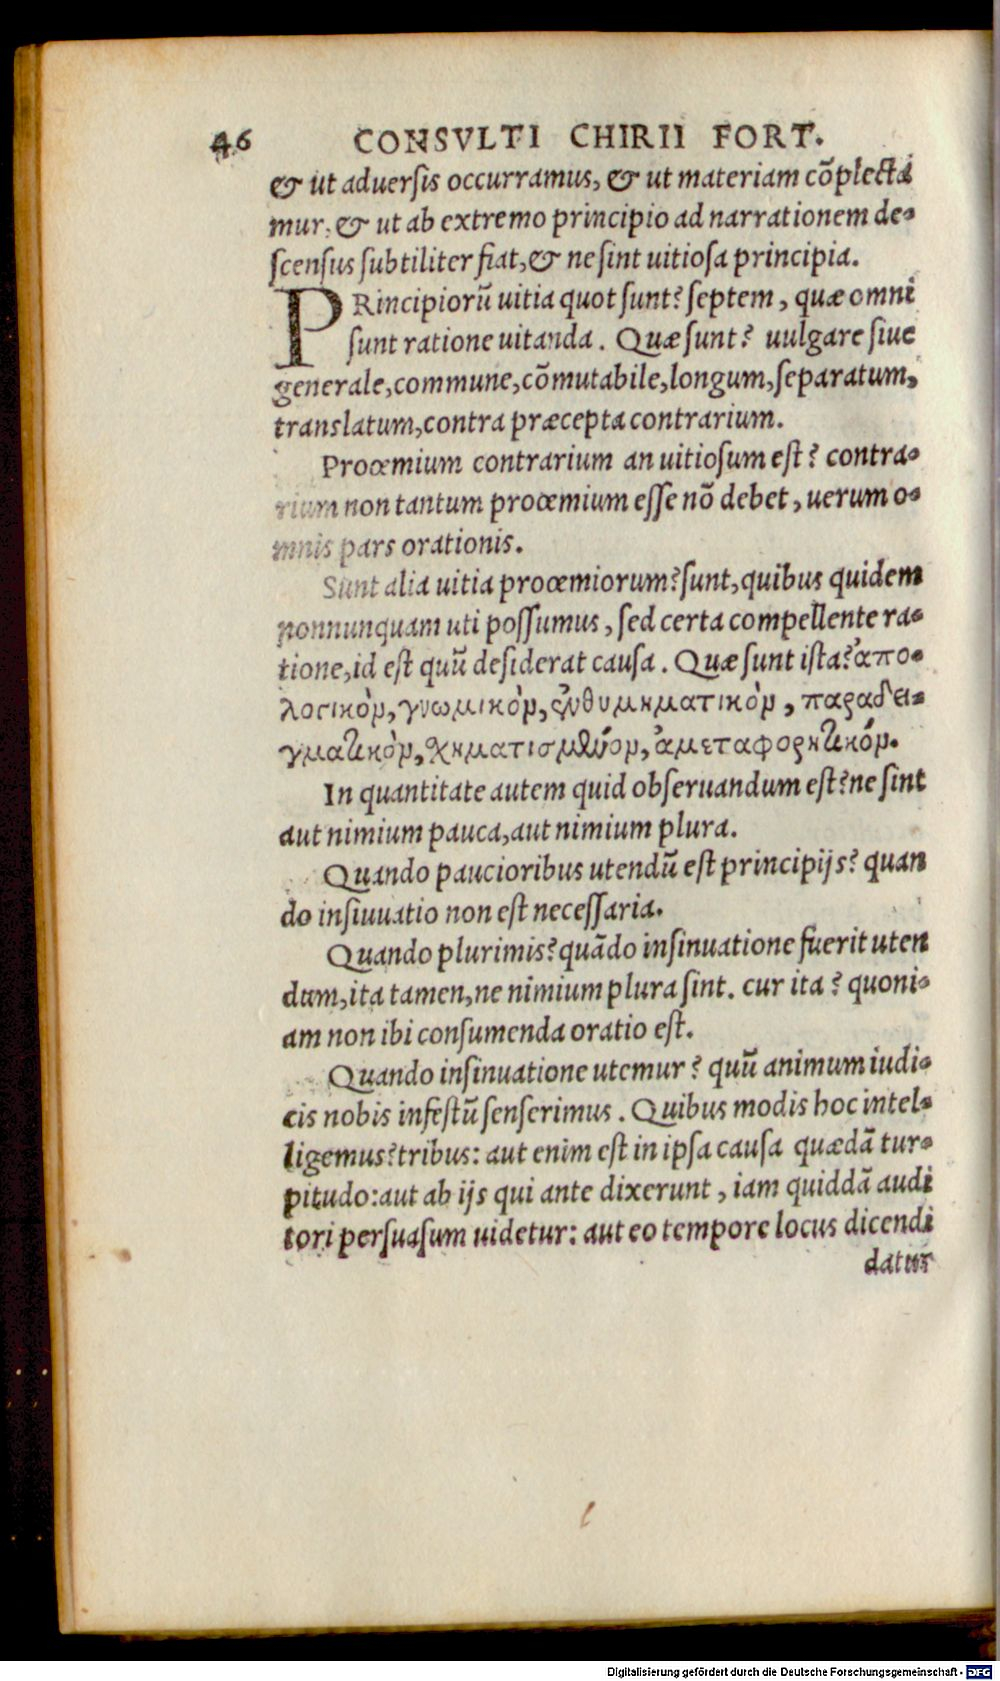 46 CONSVLTI CHIRII FORT.
& ut aduersis occurramus, & ut materiam cõplecta
mur, & ut ab extremo principio ad narrationem de-
scensus subtiliter fiat, & ne sint uitiosa principia.
PRincipiorũ uitia quot sunt? septem, quæ omni
sunt ratione uitanda. Quæ sunt? uulgare siue
generale, commune, cõmutabile, longum, separatum,
translatum, contra præcepta contrarium.
Proœmium contrarium an uitiosum est? contra-
rium non tantum proœmium esse nõ debet, uerum o-
mnis pars orationis.
Sunt alia uitia proœmiorum? sunt, quibus quidem
nonnunquam uti possumus, sed certa compellente ra-
tione, id est quũ desiderat causa. Quæ sunt ista? ἀπο-
λογικὸν, γνωμικὸν, ἐνθυμηματικὸν, παραδει-
γματικὸν, χηματισμῶνον, ἀμεταφορητικόν.
In quantitate autem quid obseruandum est? ne sint
aut nimium pauca, aut nimium plura.
Quando paucioribus utendũ est principijs? quan
do insiuuatio non est necessaria.
Quando plurimis? quãdo insinuatione fuerit uten
dum, ita tamen, ne nimium plura sint. cur ita? quoni-
am non ibi consumenda oratio est.
Quando insinuatione utemur? quũ animum iudi-
cis nobis infestũ senserimus. Quibus modis hoc intel-
ligemus? tribus: aut enim est in ipsa causa quædã tur-
pitudo: aut ab ijs qui ante dixerunt, iam quiddã audi
tori persuasum uidetur: aut eo tempore locus dicendi
datur
Digitalisierung gefördert durch die Deutsche Forschungsgemeinschaft - DFG